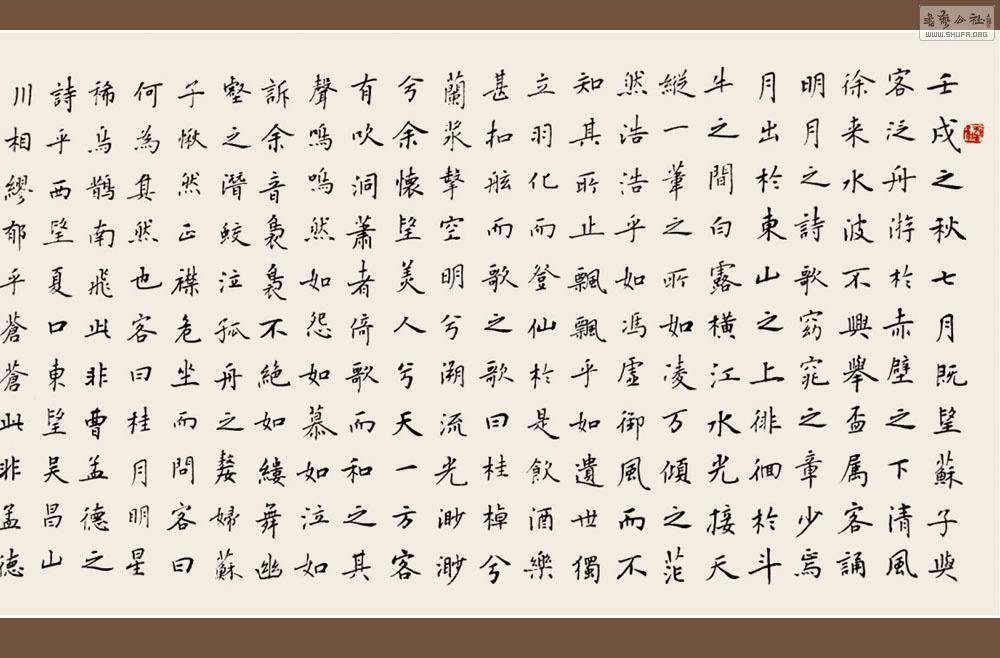 壬戌之秋七月既望蘇子與
客泛舟游於赤壁之下清風
徐来水波不興舉盃属客誦
明月之詩歌窈窕之章少焉
月出於東山之上徘徊於斗
牛之間白露橫江水光接天
縱一葦之所如凌万傾之茫
然浩浩乎如馮虛御風而不
知其所止飄飄乎如遺世獨
立羽化而登仙於是飲酒樂
甚扣舷而歌之歌曰桂棹兮
蘭槳擊空明兮溯流光渺渺
兮余懷望美人兮天一方客
有吹洞蕭者倚歌而和之其
聲嗚嗚然如怨如慕如泣如
訴余音裊裊不絕如縷舞幽
壑之潛蛟泣孤舟之嫠婦蘇
子愀然正襟危坐而問客曰
何為其然也客曰桂月明星
稀烏鵲南飛此非曹孟德之
詩乎西望夏口東望吳昌山
川相繆郁乎蒼蒼此非孟德
WWW.SHUFA.ORG